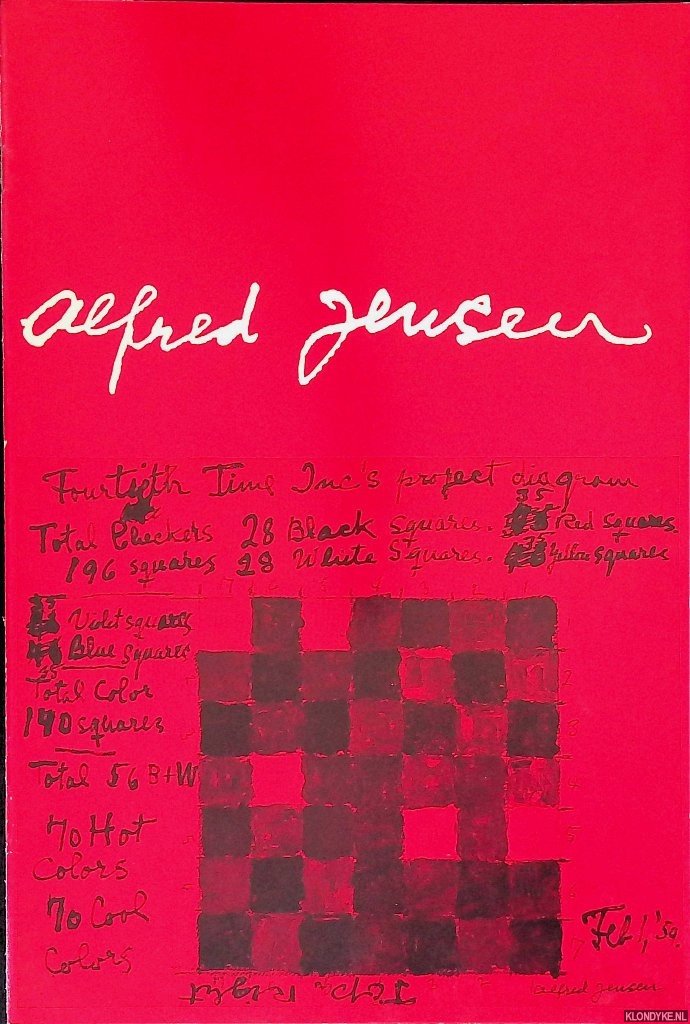 alfred jensen
Fourtieth Time Inc's project diagram
35
Total Checkers 28 Black squares. Red squares.
196 squares 28 White Squares. 35 Yellow squares
35 Violet squares
Blue squares
35
Total Color
140 squares
Total 56 B+W
70 Hot
Colors
70 Cool
Colors
Feb 1, '59.
Top, Right
alfred jensen
KLONDYKE.NL